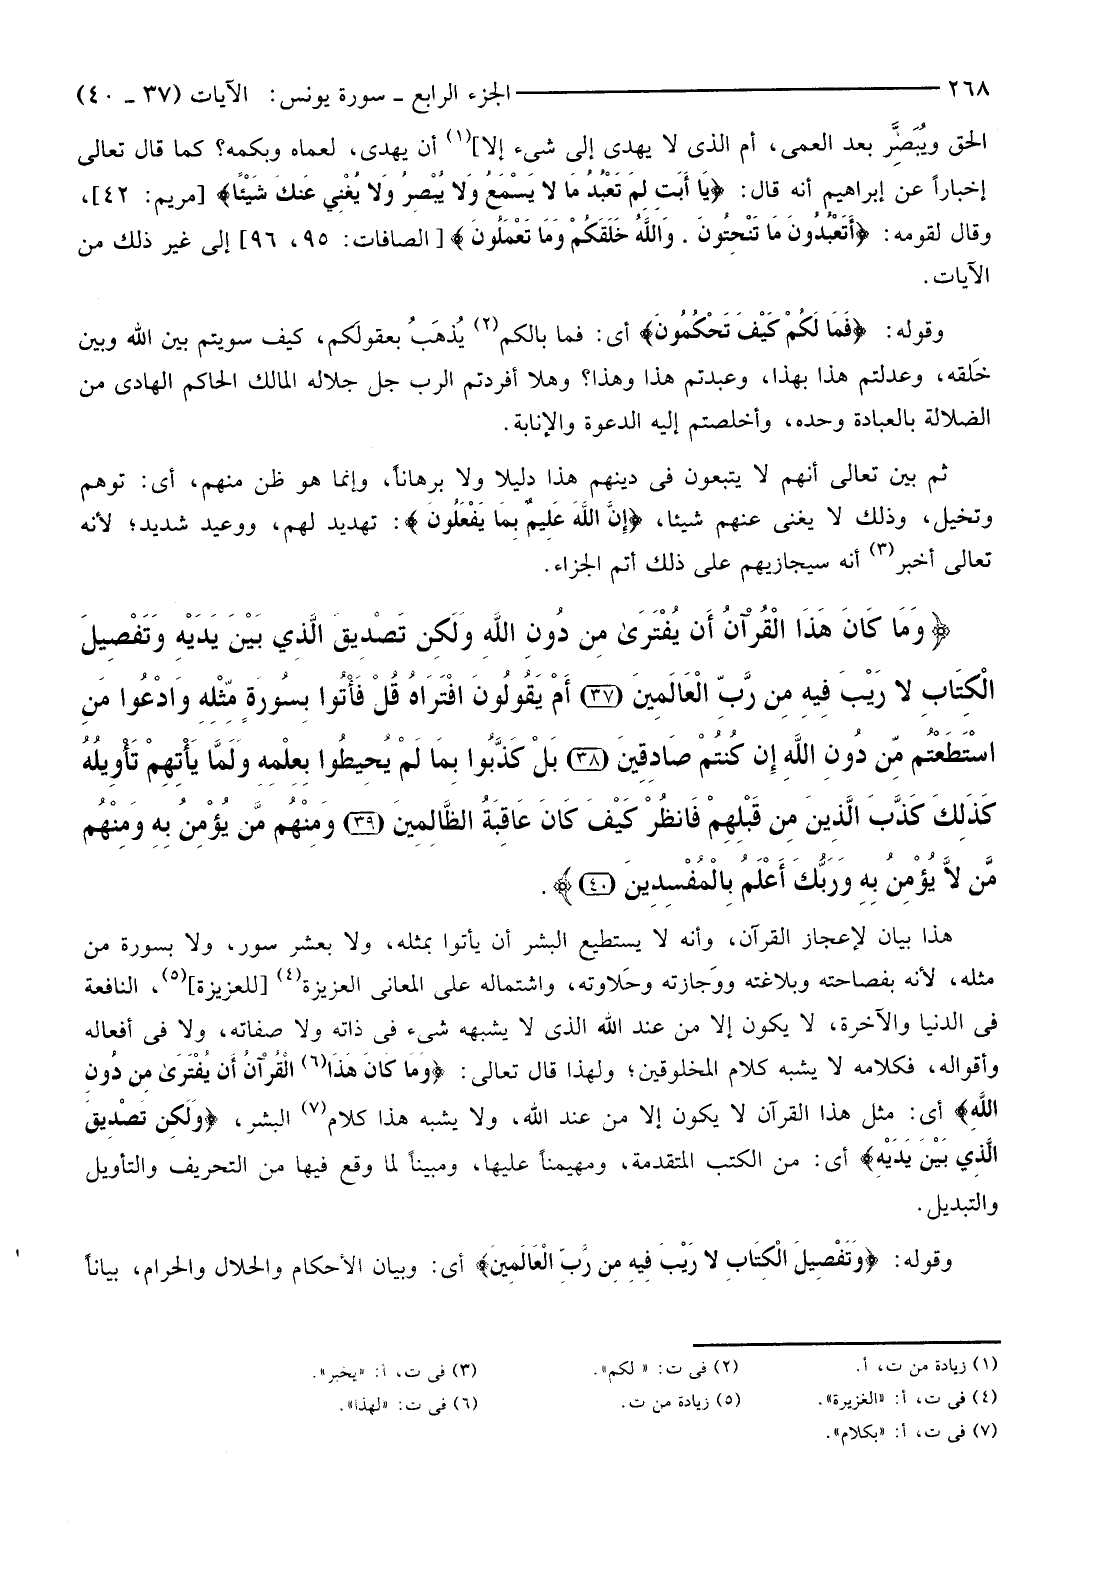 ٢٦٨ ــــــــــــــــــــــــــــــــــ الجزء الرابع ـ سورة يونس: الآيات (٣٧ ـ ٤٠)
الحق ويُبَصَّر بعد العمى، أم الذى لا يهدى إلى شىء إلا](١) أن يهدى، لعماه وبكمه؟ كما قال تعالى
إخباراً عن إبراهيم أنه قال: ﴿يَا أَبَتِ لِمَ تَعْبُدُ مَا لا يَسْمَعُ وَلا يُبْصِرُ وَلا يُغْنِي عَنكَ شَيْئًا﴾ [مريم: ٤٢]،
وقال لقومه: ﴿أَتَعْبُدُونَ مَا تَنْحِتُونَ . وَاللَّهُ خَلَقَكُمْ وَمَا تَعْمَلُونَ﴾ [الصافات: ٩٥، ٩٦] إلى غير ذلك من
الآيات.
وقوله: ﴿فَمَا لَكُمْ كَيْفَ تَحْكُمُونَ﴾ أى: فما بالكم(٢) يُذهَبُ بعقولكم، كيف سويتم بين الله وبين
خَلقه، وعدلتم هذا بهذا، وعبدتم هذا وهذا؟ وهلا أفردتم الرب جل جلاله المالك الحاكم الهادى من
الضلالة بالعبادة وحده، وأخلصتم إليه الدعوة والإنابة.
ثم بين تعالى أنهم لا يتبعون فى دينهم هذا دليلا ولا برهاناً، وإنما هو ظن منهم، أى: توهم
وتخيل، وذلك لا يغنى عنهم شيئا، ﴿إِنَّ اللَّهَ عَلِيمٌ بِمَا يَفْعَلُونَ﴾: تهديد لهم، ووعيد شديد؛ لأنه
تعالى أخبر(٣) أنه سيجازيهم على ذلك أتم الجزاء.
﴿وَمَا كَانَ هَذَا الْقُرْآنُ أَن يُفْتَرَىٰ مِن دُونِ اللَّهِ وَلَكِن تَصْدِيقَ الَّذِي بَيْنَ يَدَيْهِ وَتَفْصِيلَ
الْكِتَابِ لا رَيْبَ فِيهِ مِن رَّبِّ الْعَالَمِينَ (٣٧) أَمْ يَقُولُونَ افْتَرَاهُ قُلْ فَأْتُوا بِسُورَةٍ مِّثْلِهِ وَادْعُوا مَنِ
اسْتَطَعْتُم مِّن دُونِ اللَّهِ إِن كُنتُمْ صَادِقِينَ (٣٨) بَلْ كَذَّبُوا بِمَا لَمْ يُحِيطُوا بِعِلْمِهِ وَلَمَّا يَأْتِهِمْ تَأْوِيلُهُ
كَذَلِكَ كَذَّبَ الَّذِينَ مِن قَبْلِهِمْ فَانظُرْ كَيْفَ كَانَ عَاقِبَةُ الظَّالِمِينَ (٣٩) وَمِنْهُم مَّن يُؤْمِنُ بِهِ وَمِنْهُم
مَّن لاَّ يُؤْمِنُ بِهِ وَرَبُّكَ أَعْلَمُ بِالْمُفْسِدِينَ (٤٠)﴾.
هذا بيان لإعجاز القرآن، وأنه لا يستطيع البشر أن يأتوا بمثله، ولا بعشر سور، ولا بسورة من
مثله، لأنه بفصاحته وبلاغته ووَجازته وحَلاوته، واشتماله على المعانى العزيزة(٤) [للعزيزة](٥)، النافعة
فى الدنيا والآخرة، لا يكون إلا من عند الله الذى لا يشبهه شىء فى ذاته ولا صفاته، ولا فى أفعاله
وأقواله، فكلامه لا يشبه كلام المخلوقين؛ ولهذا قال تعالى: ﴿وَمَا كَانَ هَذَا(٦) الْقُرْآنُ أَن يُفْتَرَىٰ مِن دُونِ
اللَّهِ﴾ أى: مثل هذا القرآن لا يكون إلا من عند الله، ولا يشبه هذا كلام(٧) البشر، ﴿وَلَكِن تَصْدِيقَ
الَّذِي بَيْنَ يَدَيْهِ﴾ أى: من الكتب المتقدمة، ومهيمناً عليها، ومبيناً لما وقع فيها من التحريف والتأويل
والتبديل.
وقوله: ﴿وَتَفْصِيلَ الْكِتَابِ لا رَيْبَ فِيهِ مِن رَّبِّ الْعَالَمِينَ﴾ أى: وبيان الأحكام والحلال والحرام، بياناً
(١) زيادة من ت، أ. (٢) فى ت: « لكم». (٣) فى ت، أ: «يخبر».
(٤) فى ت، أ: «الغزيرة». (٥) زيادة من ت. (٦) فى ت: «لهذا».
(٧) فى ت، أ: «بكلام».